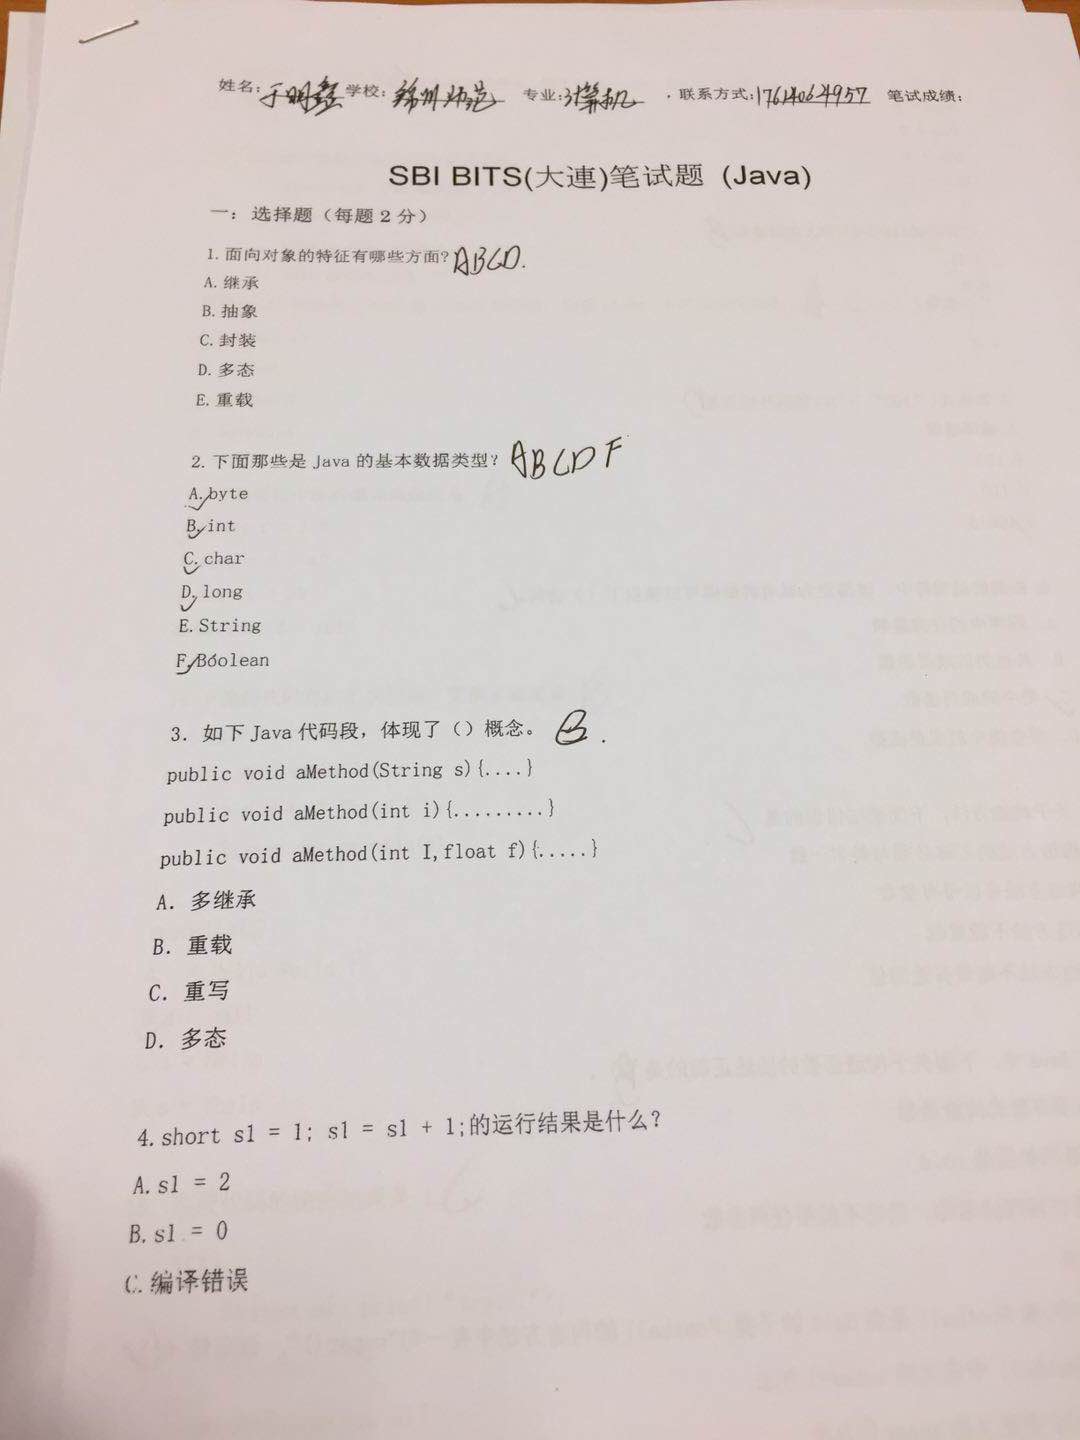 姓名:于明鑫 学校:锦州师范 专业:计算机 .联系方式:17614064957 笔试成绩:
SBI BITS(大連)笔试题 (Java)
一: 选择题（每题2分）
1. 面向对象的特征有哪些方面? ABCD.
A. 继承
B. 抽象
C. 封装
D. 多态
E. 重载
2. 下面那些是 Java 的基本数据类型? ABCDF
A. byte
B. int
C. char
D. long
E. String
F. Boolean
3. 如下 Java 代码段，体现了（）概念。 B.
public void aMethod(String s){....}
public void aMethod(int i){.........}
public void aMethod(int I,float f){.....}
A. 多继承
B. 重载
C. 重写
D. 多态
4. short s1 = 1; s1 = s1 + 1;的运行结果是什么?
A. s1 = 2
B. s1 = 0
C. 编译错误